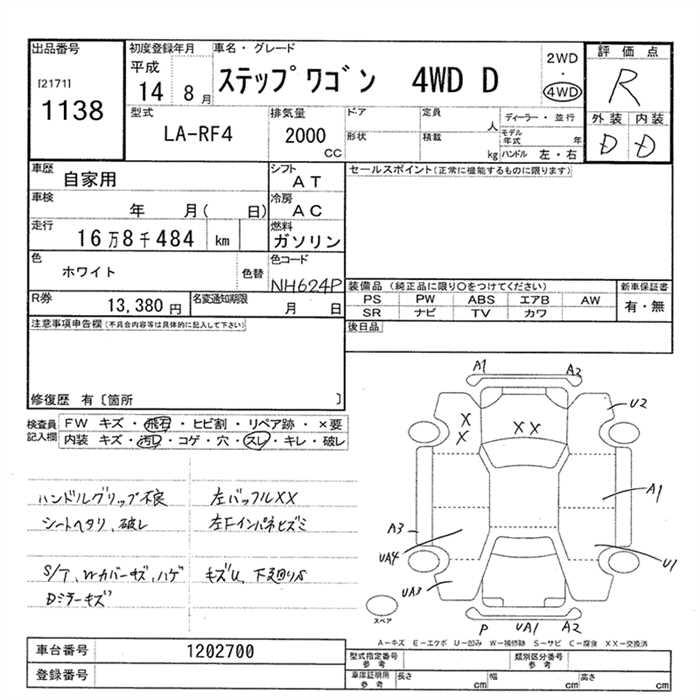 出品番号
[2171]
1138
初度登録年月
平成
14 8月
車名・グレード
ステップワゴン 4WD D
2WD
・
4WD
評価点
R
外装 内装
D D
型式
LA-RF4
排気量
2000
CC
ドア
形状
定員
人
積載
kg
ディーラー・並行
モデル年式 年
ハンドル 左・右
車歴
自家用
シフト
AT
車検
年 月( 日)
冷房
AC
走行
16万8千484 km
燃料
ガソリン
色
ホワイト
色替
色コード
NH624P
R券
13,380 円
名変通知期限
月 日
セールスポイント(正常に機能するものに限ります)
装備品 (純正品に限り○をつけてください)
新車保証書
PS PW ABS エアB AW
SR ナビ TV カワ
有・無
後日品
注意事項申告欄(不具合内容等は具体的に記入して下さい)
修復歴 有〔箇所 〕
検査員記入欄
FW キズ・飛石・ヒビ割・リペア跡・×要
内装 キズ・汚レ・コゲ・穴・スレ・キレ・破レ
ハンドルグリップ不良
シートヘタリ、破レ
S/T、Wカバーキズ、ハゲ
Dミラーキズ
左バッフルXX
左Fインパネヒズミ
キズU、下廻りS
A1
A2
U2
X
X
X X
A1
A3
UA4
U1
UA3
P UA1 A2
スペア
A-キズ E-エクボ U-凹み W-補修跡 S-サビ C-腐食 XX-交換済
車台番号
1202700
登録番号
型式指定番号
参考
類別区分番号
参考
車庫証明用
参考
長さ cm
幅 cm
高さ cm